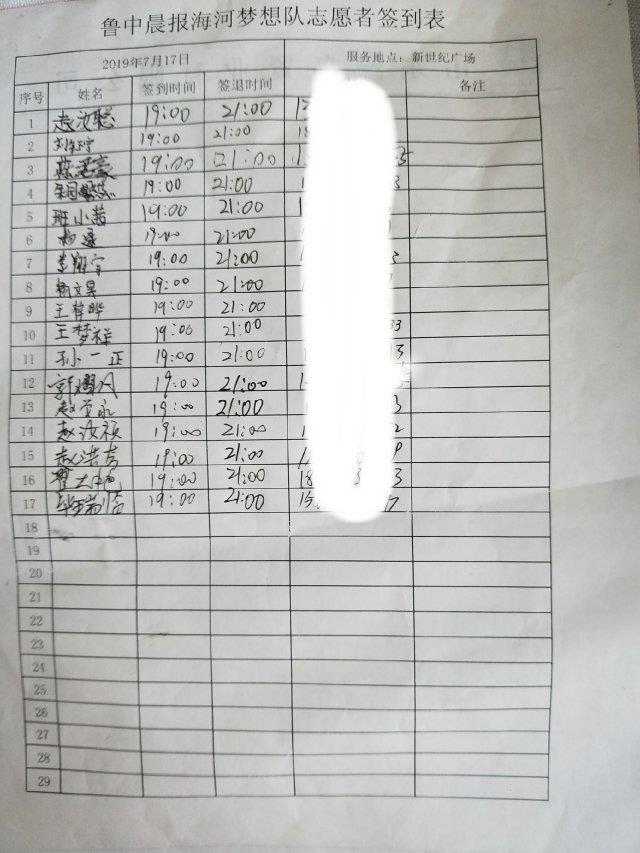 鲁中晨报海河梦想队志愿者签到表
2019年7月17日 服务地点：新世纪广场
序号 姓名 签到时间 签退时间 备注
1 赵汝聪 19:00 21:00
2 19:00 21:00
3 19:00 21:00
4 19:00 21:00
5 班小茜 19:00 21:00
6 杨遥 19:00 21:00
7 李翔宇 19:00 21:00
8 杨文昊 19:00 21:00
9 王梓晔 19:00 21:00
10 王梦祥 19:00 21:00 33
11 孙一正 19:00 21:00
12 19:00 21:00
13 19:00 21:00 3
14 赵汝祯 19:00 21:00 2
15 赵洪吉 19:00 21:00
16 19:00 21:00 18 3
17 19:00 21:00 15
18
19
20
21
22
23
24
25
26
27
28
29